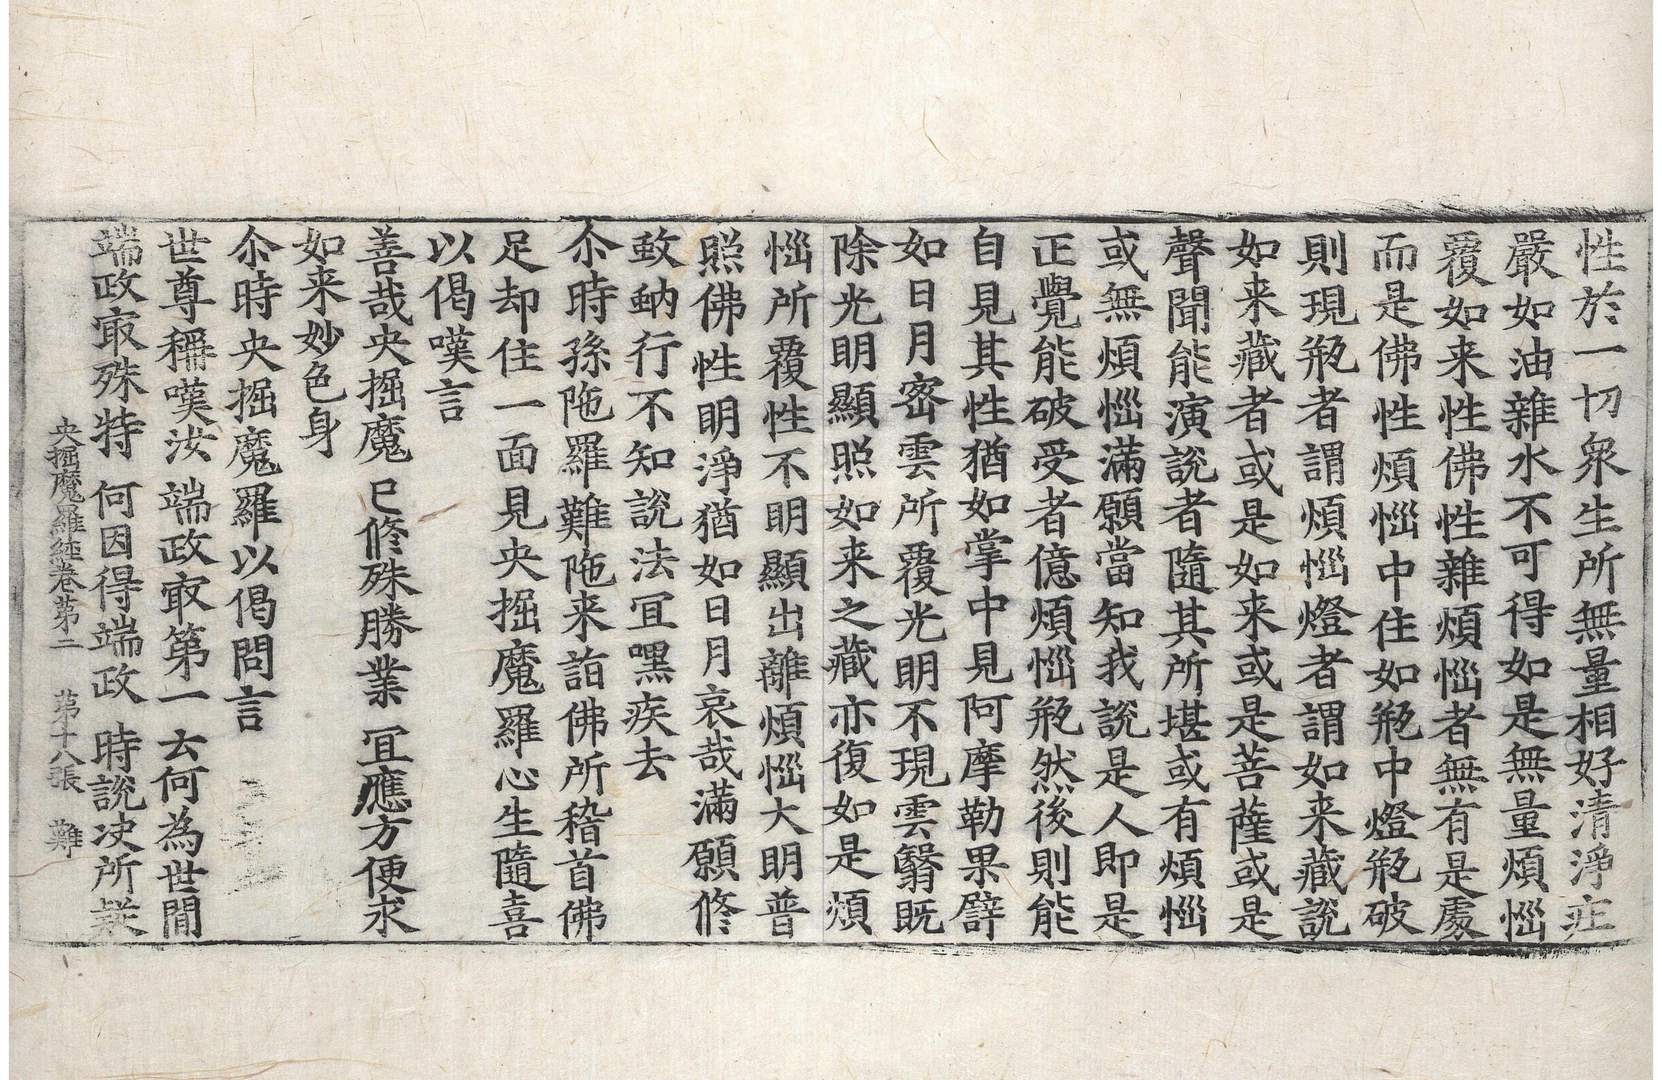 性於一切衆生所無量相好清淨疘
嚴如油雜水不可得如是無量煩惱
覆如来性佛性雜煩惱者無有是處
而是佛性煩惱中住如甁中燈甁破
則現甁者謂煩惱燈者謂如来藏說
如来藏者或是如来或是菩薩或是
聲聞能演說者隨其所堪或有煩惱
或無煩惱滿願當知我說是人即是
正覺能破受者億煩惱甁然後則能
自見其性猶如掌中見阿摩勒果譬
如日月密雲所覆光明不現雲翳旣
除光明顯照如来之藏亦復如是煩
惱所覆性不明顯出離煩惱大明普
照佛性明淨猶如日月哀哉滿願修
蚊蚋行不知說法冝嘿疾去
尒時孫陁羅難陁来詣佛所稽首佛
足却住一面見央掘魔羅心生隨喜
以偈嘆言
善哉央掘魔 已修殊勝業 冝應方便求
如来妙色身
尒時央掘魔羅以偈問言
世尊稱嘆汝 端政㝡第一 云何為世間
端政㝡殊特 何因得端政 時說决所疑
央掘魔羅経卷第二 第十八張 難